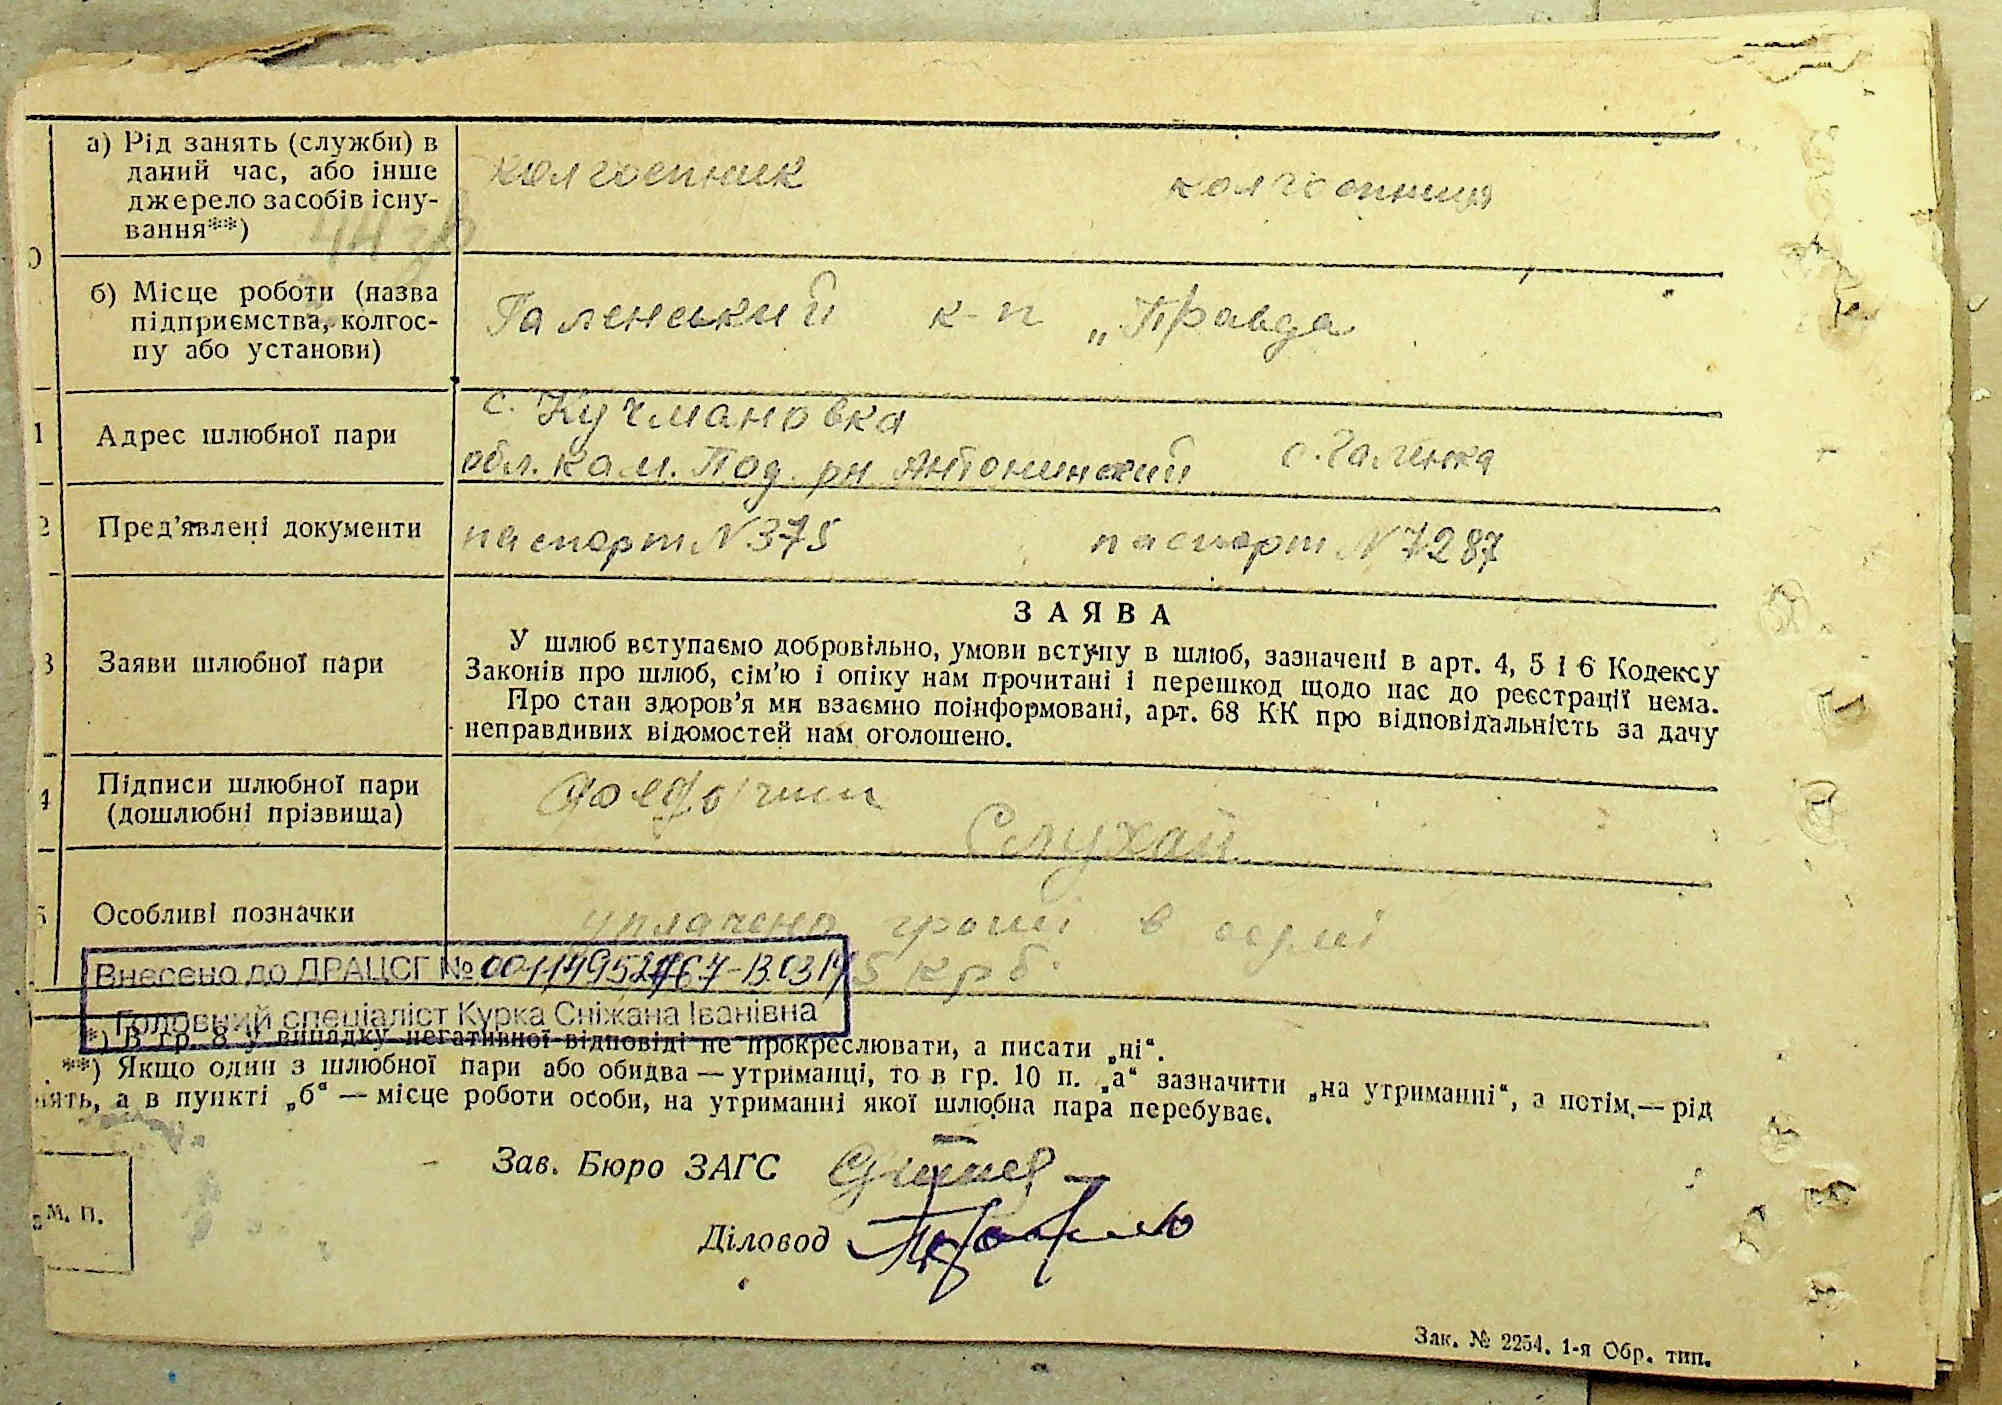 а) Рід занять (служби) в
даний час, або інше
джерело засобів існу-
вання**)
колгоспник колгоспниця
б) Місце роботи (назва
підприємства, колгос-
пу або установи)
Галенський к-п „Правда
1 Адрес шлюбної пари
с. Кучмановка
обл. Кам. Под. рн Антонинский с. Галенка
2 Пред’явлені документи
паспорт № 375 паспорт № 7287
3 Заяви шлюбної пари
ЗАЯВА
У шлюб вступаємо добровільно, умови вступу в шлюб, зазначені в арт. 4, 5 і 6 Кодексу
Законів про шлюб, сім’ю і опіку нам прочитані і перешкод щодо нас до реєстрації нема.
Про стан здоров’я ми взаємно поінформовані, арт. 68 КК про відповідальність за дачу
неправдивих відомостей нам оголошено.
4 Підписи шлюбної пари
(дошлюбні прізвища)
Слухай
5 Особливі позначки
уплачено гроші в сумі
15 крб.
Внесено до ДРАЦСГ №
Головний спеціаліст Курка Сніжана Іванівна
*) В гр. 8 у випадку негативної відповіді не прокреслювати, а писати „ні“.
**) Якщо один з шлюбної пари або обидва — утриманці, то в гр. 10 п. „а“ зазначити „на утриманні“, а потім — рід
нять, а в пункті „б“ — місце роботи особи, на утриманні якої шлюбна пара перебуває.
Зав. Бюро ЗАГС
Діловод
М. П.
Зак. № 2254. 1-я Обр. тип.